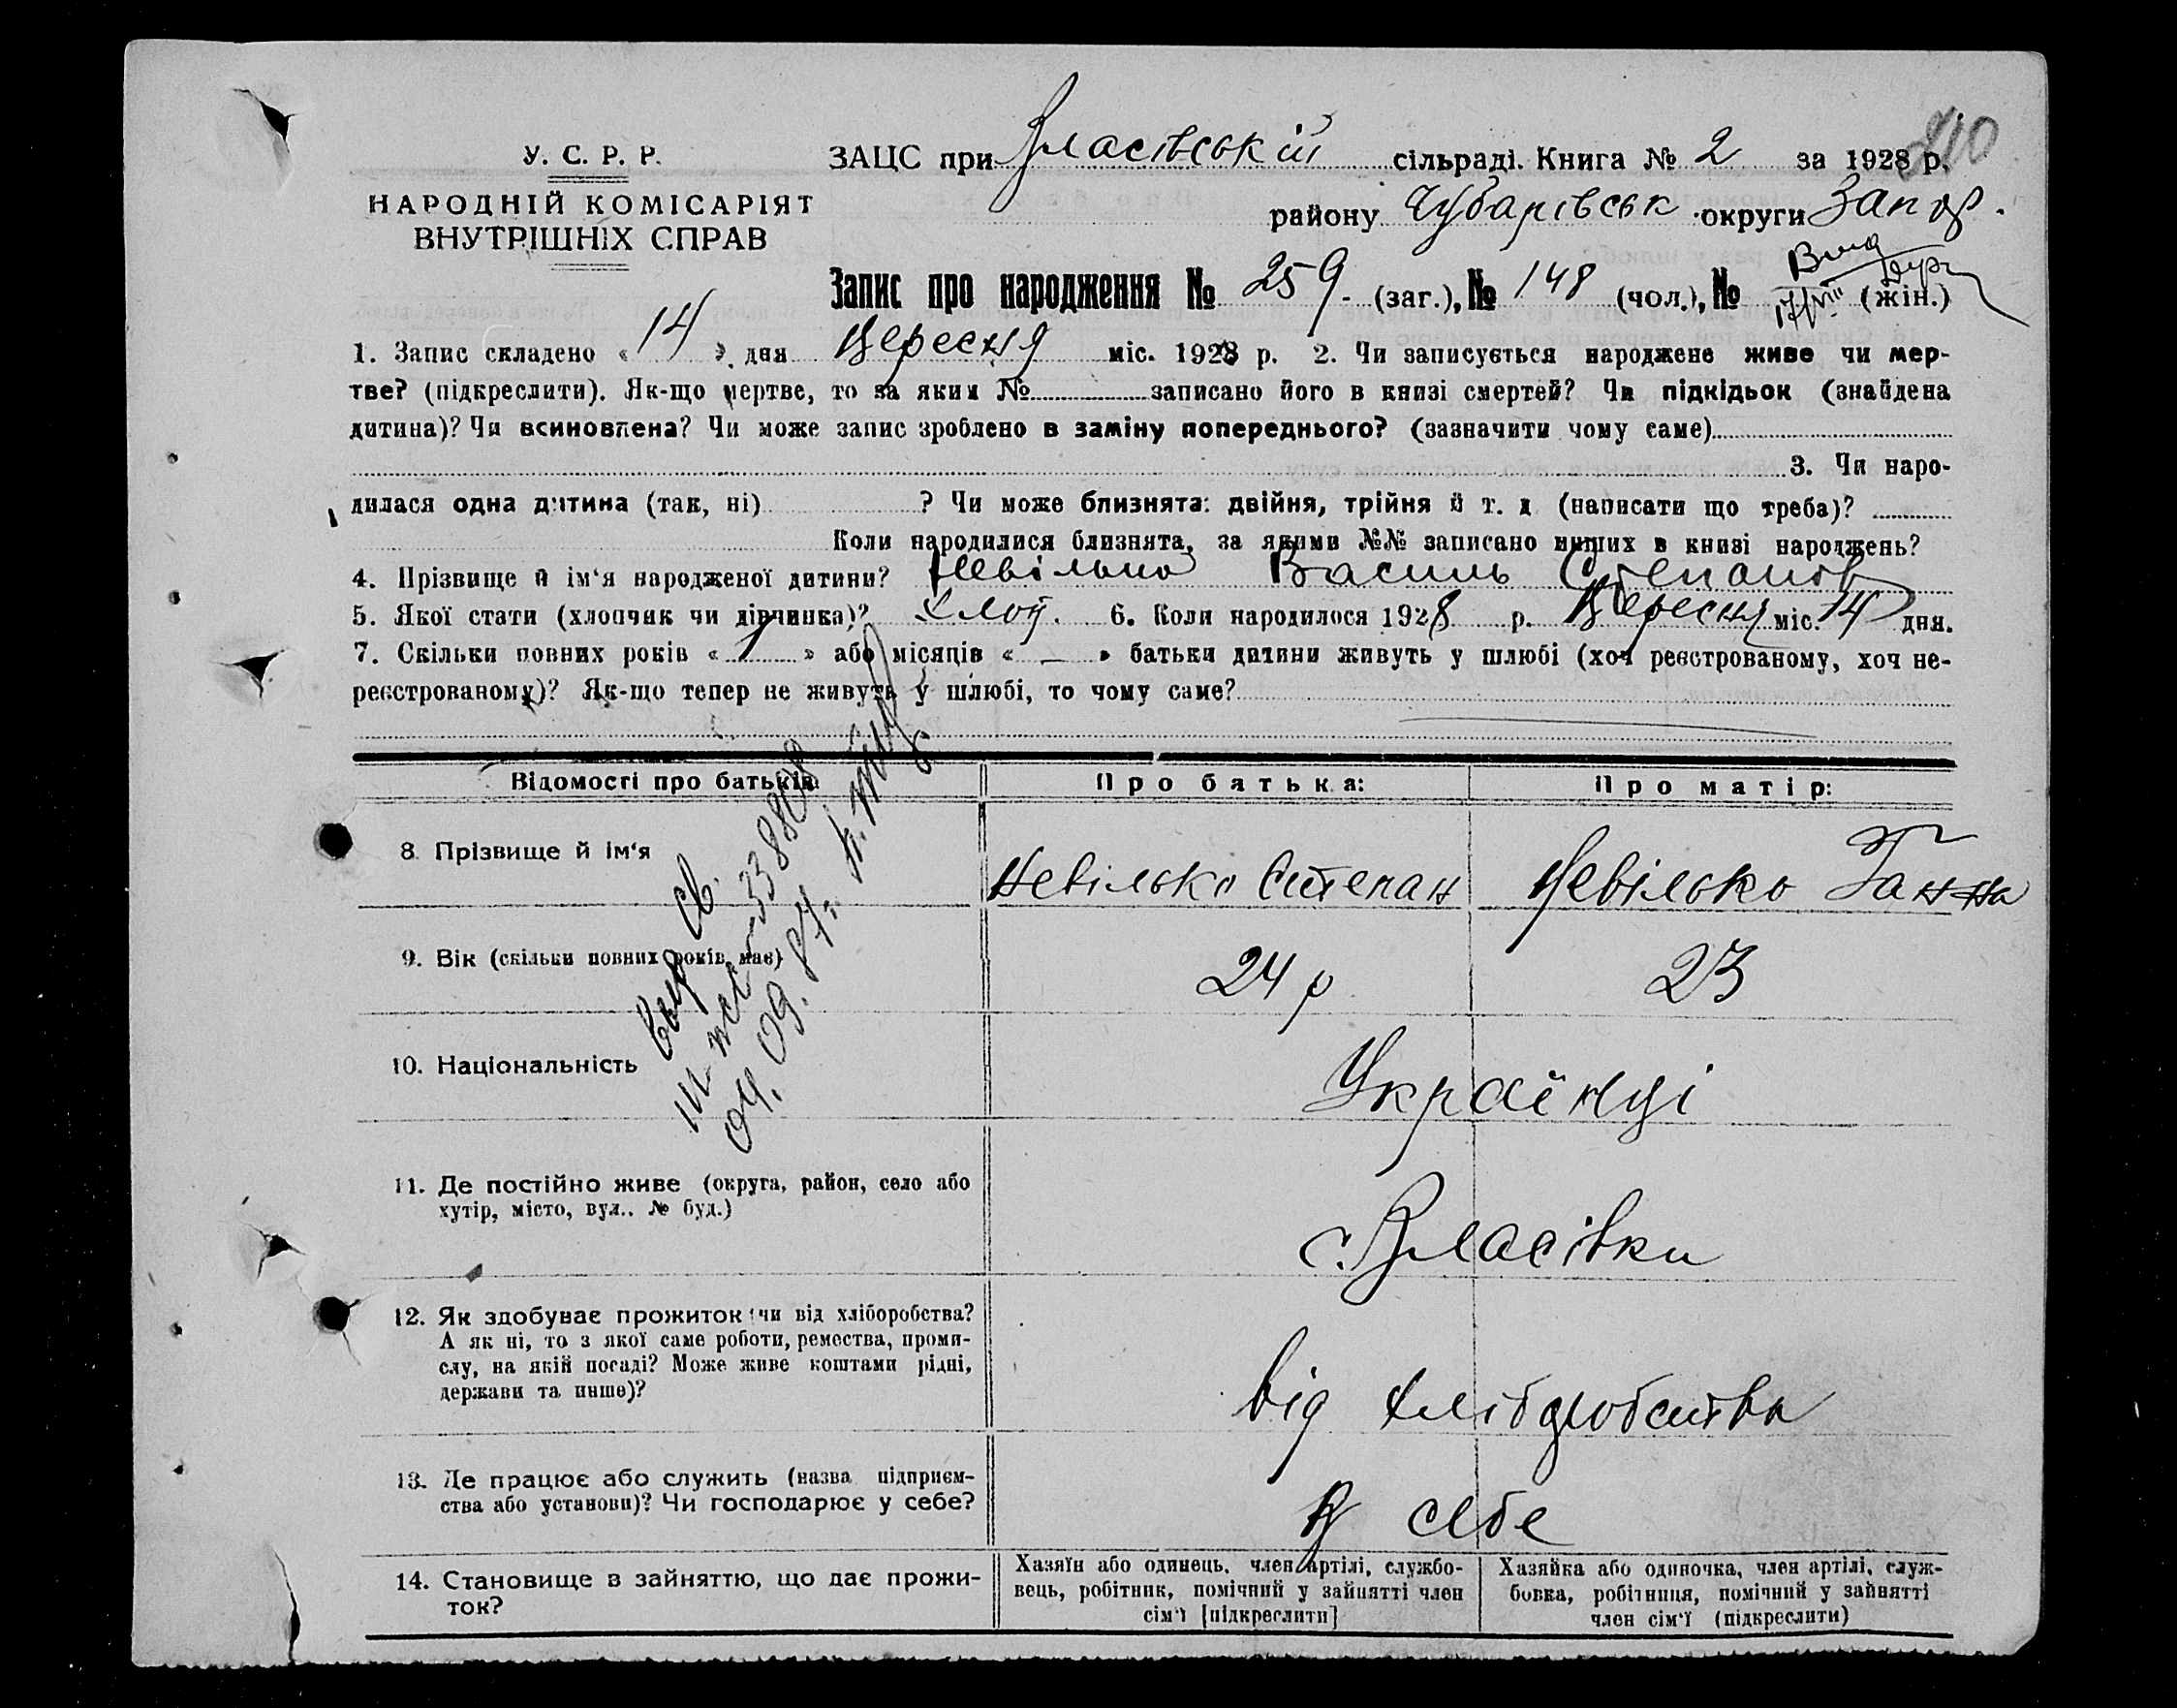 210
У. С. Р. Р.
НАРОДНІЙ КОМІСАРІЯТ
ВНУТРІШНІХ СПРАВ
ЗАЦС при Власівській сільраді. Книга № 2 за 1928 р.
району Чубарівськ округи Запор.
Запис про народження № 259 (заг.), № 148 (чол.), № (жін.)
1. Запис складено « 14 » дня Вересня міс. 1928 р. 2. Чи записується народжене живе чи мер-
тве? (підкреслити). Як-що мертве, то за яким № записано його в книзі смертей? Чи підкідьок (знайдена
дитина)? Чи всиновлена? Чи може запис зроблено в заміну попереднього? (зазначити чому саме)
3. Чи наро-
дилася одна дитина (так, ні) ? Чи може близнята: двійня, трійня й т. д (написати що треба)?
Коли народилися близнята, за якими №№ записано инших в книзі народжень?
4. Прізвище й ім'я народженої дитини? Невілько Василь Степанов
5. Якої стати (хлопчик чи дівчинка)? хлоп. 6. Коли народилося 1928 р. Вересня міс. 14 дня.
7. Скільки повних років « 1 » або місяців « — » батьки дитини живуть у шлюбі (хоч реєстрованому, хоч не-
реєстрованому)? Як-що тепер не живуть у шлюбі, то чому саме?
Відомості про батьків
Про батька:
Про матір:
8. Прізвище й ім'я
Невілько Степан
Невілько Ганна
9. Вік (скільки повних років має)
24 р
23
10. Національність
Українці
11. Де постійно живе (округа, район, село або
хутір, місто, вул.. № буд.)
с. Власівки
12. Як здобуває прожиток (чи від хліборобства?
А як ні, то з якої саме роботи, ремества, проми-
слу, на якій посаді? Може живе коштами рідні,
держави та инше)?
від хліборобства
13. Де працює або служить (назва підприєм-
ства або установи)? Чи господарює у себе?
У себе
14. Становище в зайняттю, що дає прожи-
ток?
Хазяїн або одинець, член артілі, службо-
вець, робітник, помічний у зайнятті член
сім'ї [підкреслити]
Хазяйка або одиночка, член артілі, служ-
бовка, робітниця, помічний у зайнятті
член сім'ї (підкреслити)
04. 09. 87г.